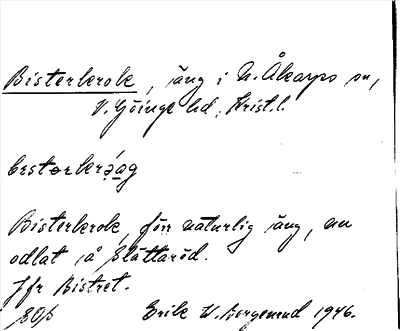 Bisterkrok, äng i N. Åkarps sn,
V. Göinge hd, Krist. l.
Bisterkrok, förr naturlig äng, nu
odlat å Slättaröd.
Jfr Bistret.
Erik W. Borgenud 1946.